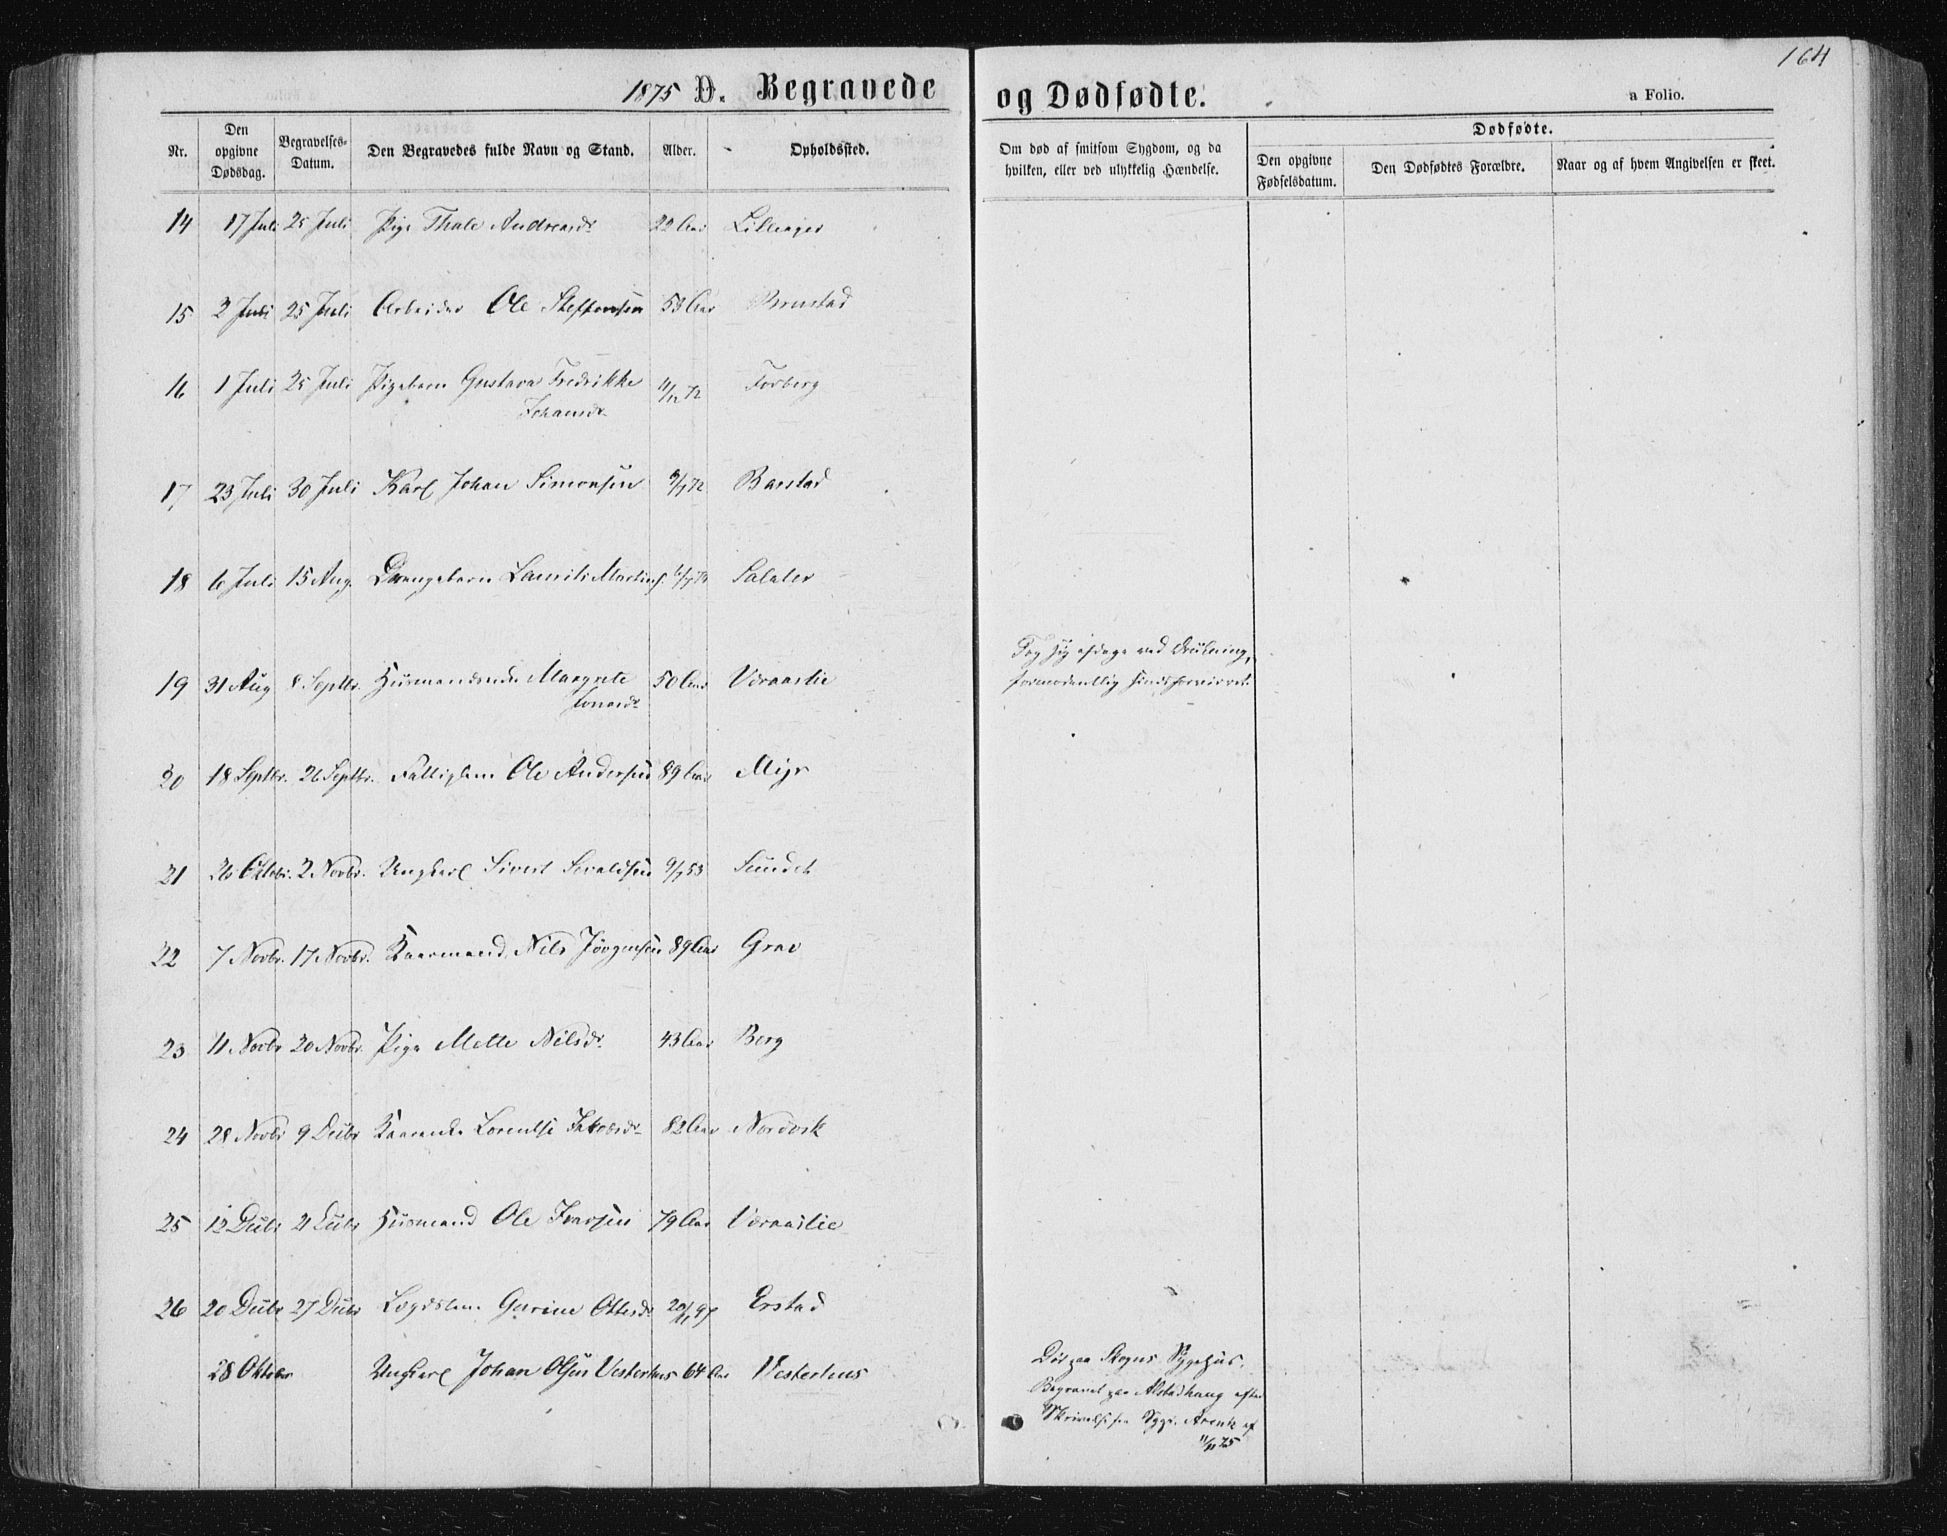 164
1875 D. Begravede og Dødfødte.
a Folio.
Nr. Den opgivne Dødsdag. Begravelses-Datum. Den Begravedes fulde Navn og Stand. Alder. Opholdssted. Om død af smitsom Sygdom, og da hvilken, eller ved ulykkelig Hændelse. Dødfødte. Den opgivne Fødselsdatum. Den Dødfødtes Forældre. Naar og af hvem Angivelsen er skeet.
14 17 Juli 25 Juli Pige Thale Andreasdr 22 Aar
15 2 Juli 25 Juli Arbeider Ole Steffensen 53 Aar
16 1 Juli 25 Juli Pigebarn Gustava Fredrikke 11/12 72 Forberg
Johansdr
17 23 Juli 30 Juli Karl Johan Simonsen Barstad
18 6 Juli 15 Aug. Drengebarn Laurits Martins. Salater
Tog sig afdage ved Drukning,
19 31 Aug 8 Septbr. Husmandsenke Margrete 50 Aar Væraaslie formodentlig sindsforvirret.
Jonasdr
20 18 Septbr. 26 Septbr. Fattiglem Ole Andersen 89 Aar Myr
21 26 Oktobr. 2 Novbr. Ungkarl Sivert 9/7 53 Sundet
22 7 Novbr. 17 Novbr. Kaarmand Nils Jørgensen 89 Aar Grav
23 11 Novbr 20 Novbr. Pige Mette Nilsdr. 43 Aar Berg
24 28 Novbr 9 Decbr Kaarenke Lorentse Jakobsdr 82 Aar Nordvik
25 12 Decbr 21 Decbr Husmand Ole Ivarsen 79 Aar Væraaslie
26 20 Decbr 27 Decbr Lægdslem Gurine Ottesdr 20/11 97 Erstad
28 Oktober Ungkarl Johan Olsen Vesterhus 64 Aar Vesterhus Død paa Skogns Sygehus.
Begravet paa Alstadhaug efter
Skrivelse fra Sgpr. Arentz af
11/11 75